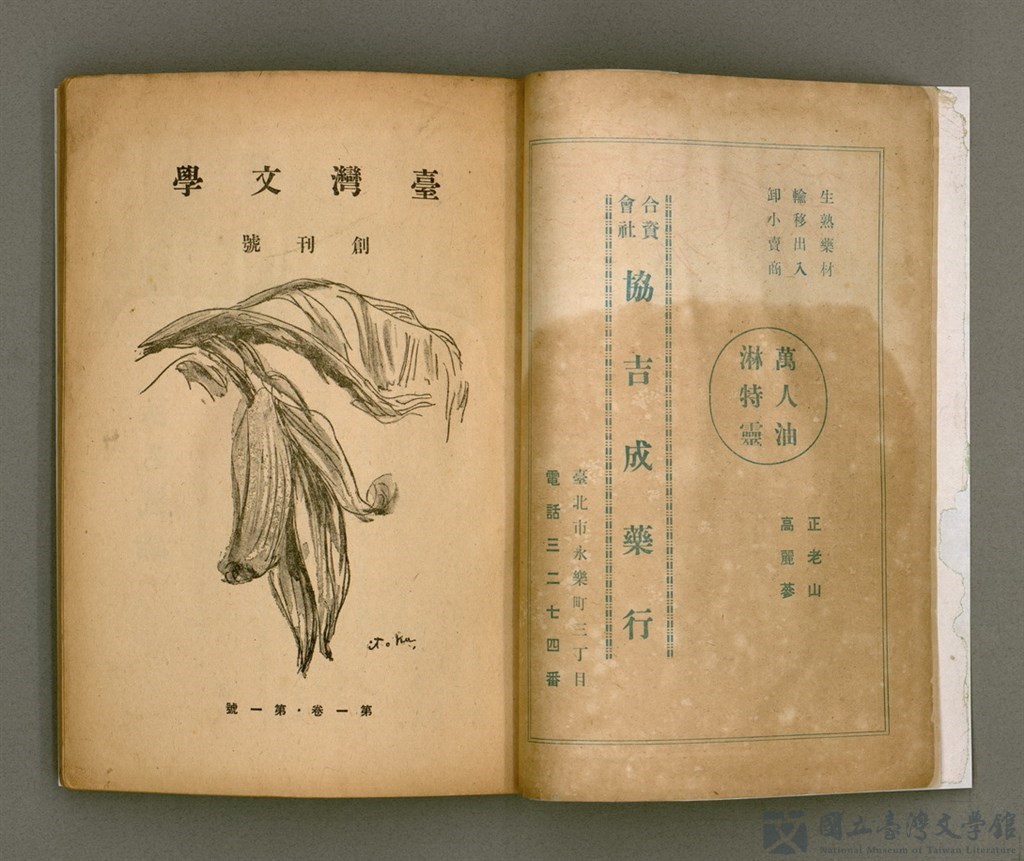 臺灣文學
創刊號
第一卷・第一號
生熟藥材
輸移出入
卸小賣商
萬人油
淋特靈
正老山
高麗蔘
合資
會社
協吉成藥行
臺北市永樂町三丁目
電話三二七四番
國立臺灣文學館
National Museum of Taiwan Literature